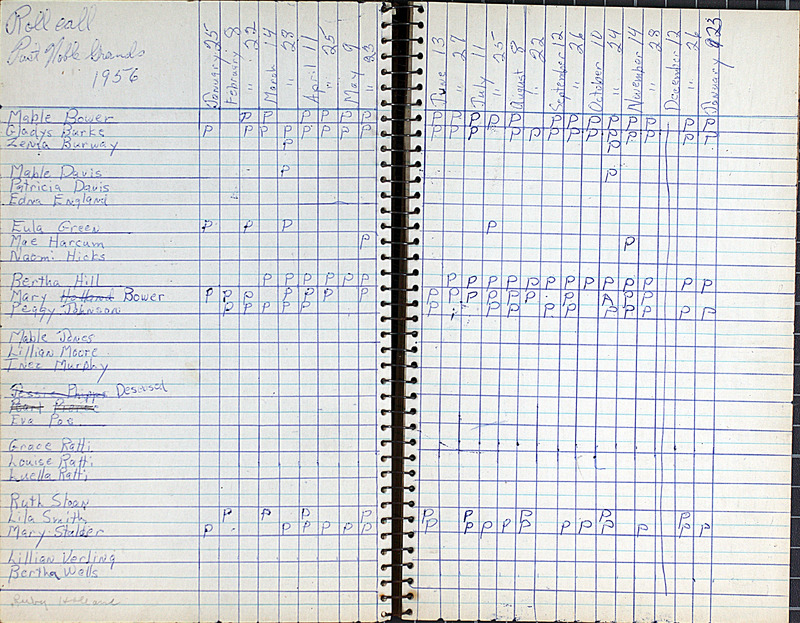 Roll call
Past Noble Grands
1956
January 25 February 8 " 22 March 14 " 28 April 11 " 25 May 9 " 23 June 13 " 27 July 11 " 25 August 8 " 22 September 12 " 26 October 10 " 24 November 14 " 28 December 12 " 26 January 9 23
Mable Bower P P P P P P P P P P P P P P P P P P P P
Gladys Burks P P P P P P P P P P P P P P P P P P P P P P
Zenia Burway P P
Mable Davis P P
Patricia Davis
Edna England
Eula Green P P P P
Mae Harcum P P
Naomi Hicks
Bertha Hill P P P P P P P P P P P P P P P P P P P
Mary Holland Bower P P P P P P P P P P P P P A P P
Peggy Johnson P P P P P P P P P P P P P P P
Mable Jones
Lillian Moore
Inez Murphy
Jessie Phipps Desesed
Eva Poe
Grace Ratti
Louise Ratti
Luella Ratti
Ruth Sloan
Lila Smith P P P P P P P P P
Mary Stalder P P P P P P P P P P P P P P P P
Lillian Verling
Bertha Wells
Ruby Holland